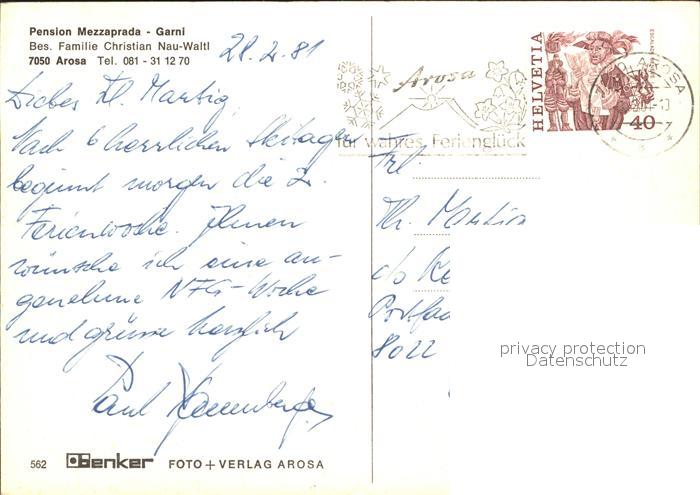 Pension Mezzaprada - Garni
Bes. Familie Christian Nau-Waltl
7050 Arosa Tel. 081 - 31 12 70
28.2.81
Liebes Frl. Martig
Nach 6 herrlichen Skitagen
beginnt morgen die 2.
Ferienwoche. Ihnen
wünsche ich eine an-
genehme NFG-Woche
und grüsse herzlich
Paul
562 Benker FOTO + VERLAG AROSA
Arosa
für wahres Ferienglück
HELVETIA
40
AROSA
Frl
Th. Martig
c/o
Postfac
8022
privacy protection
Datenschutz